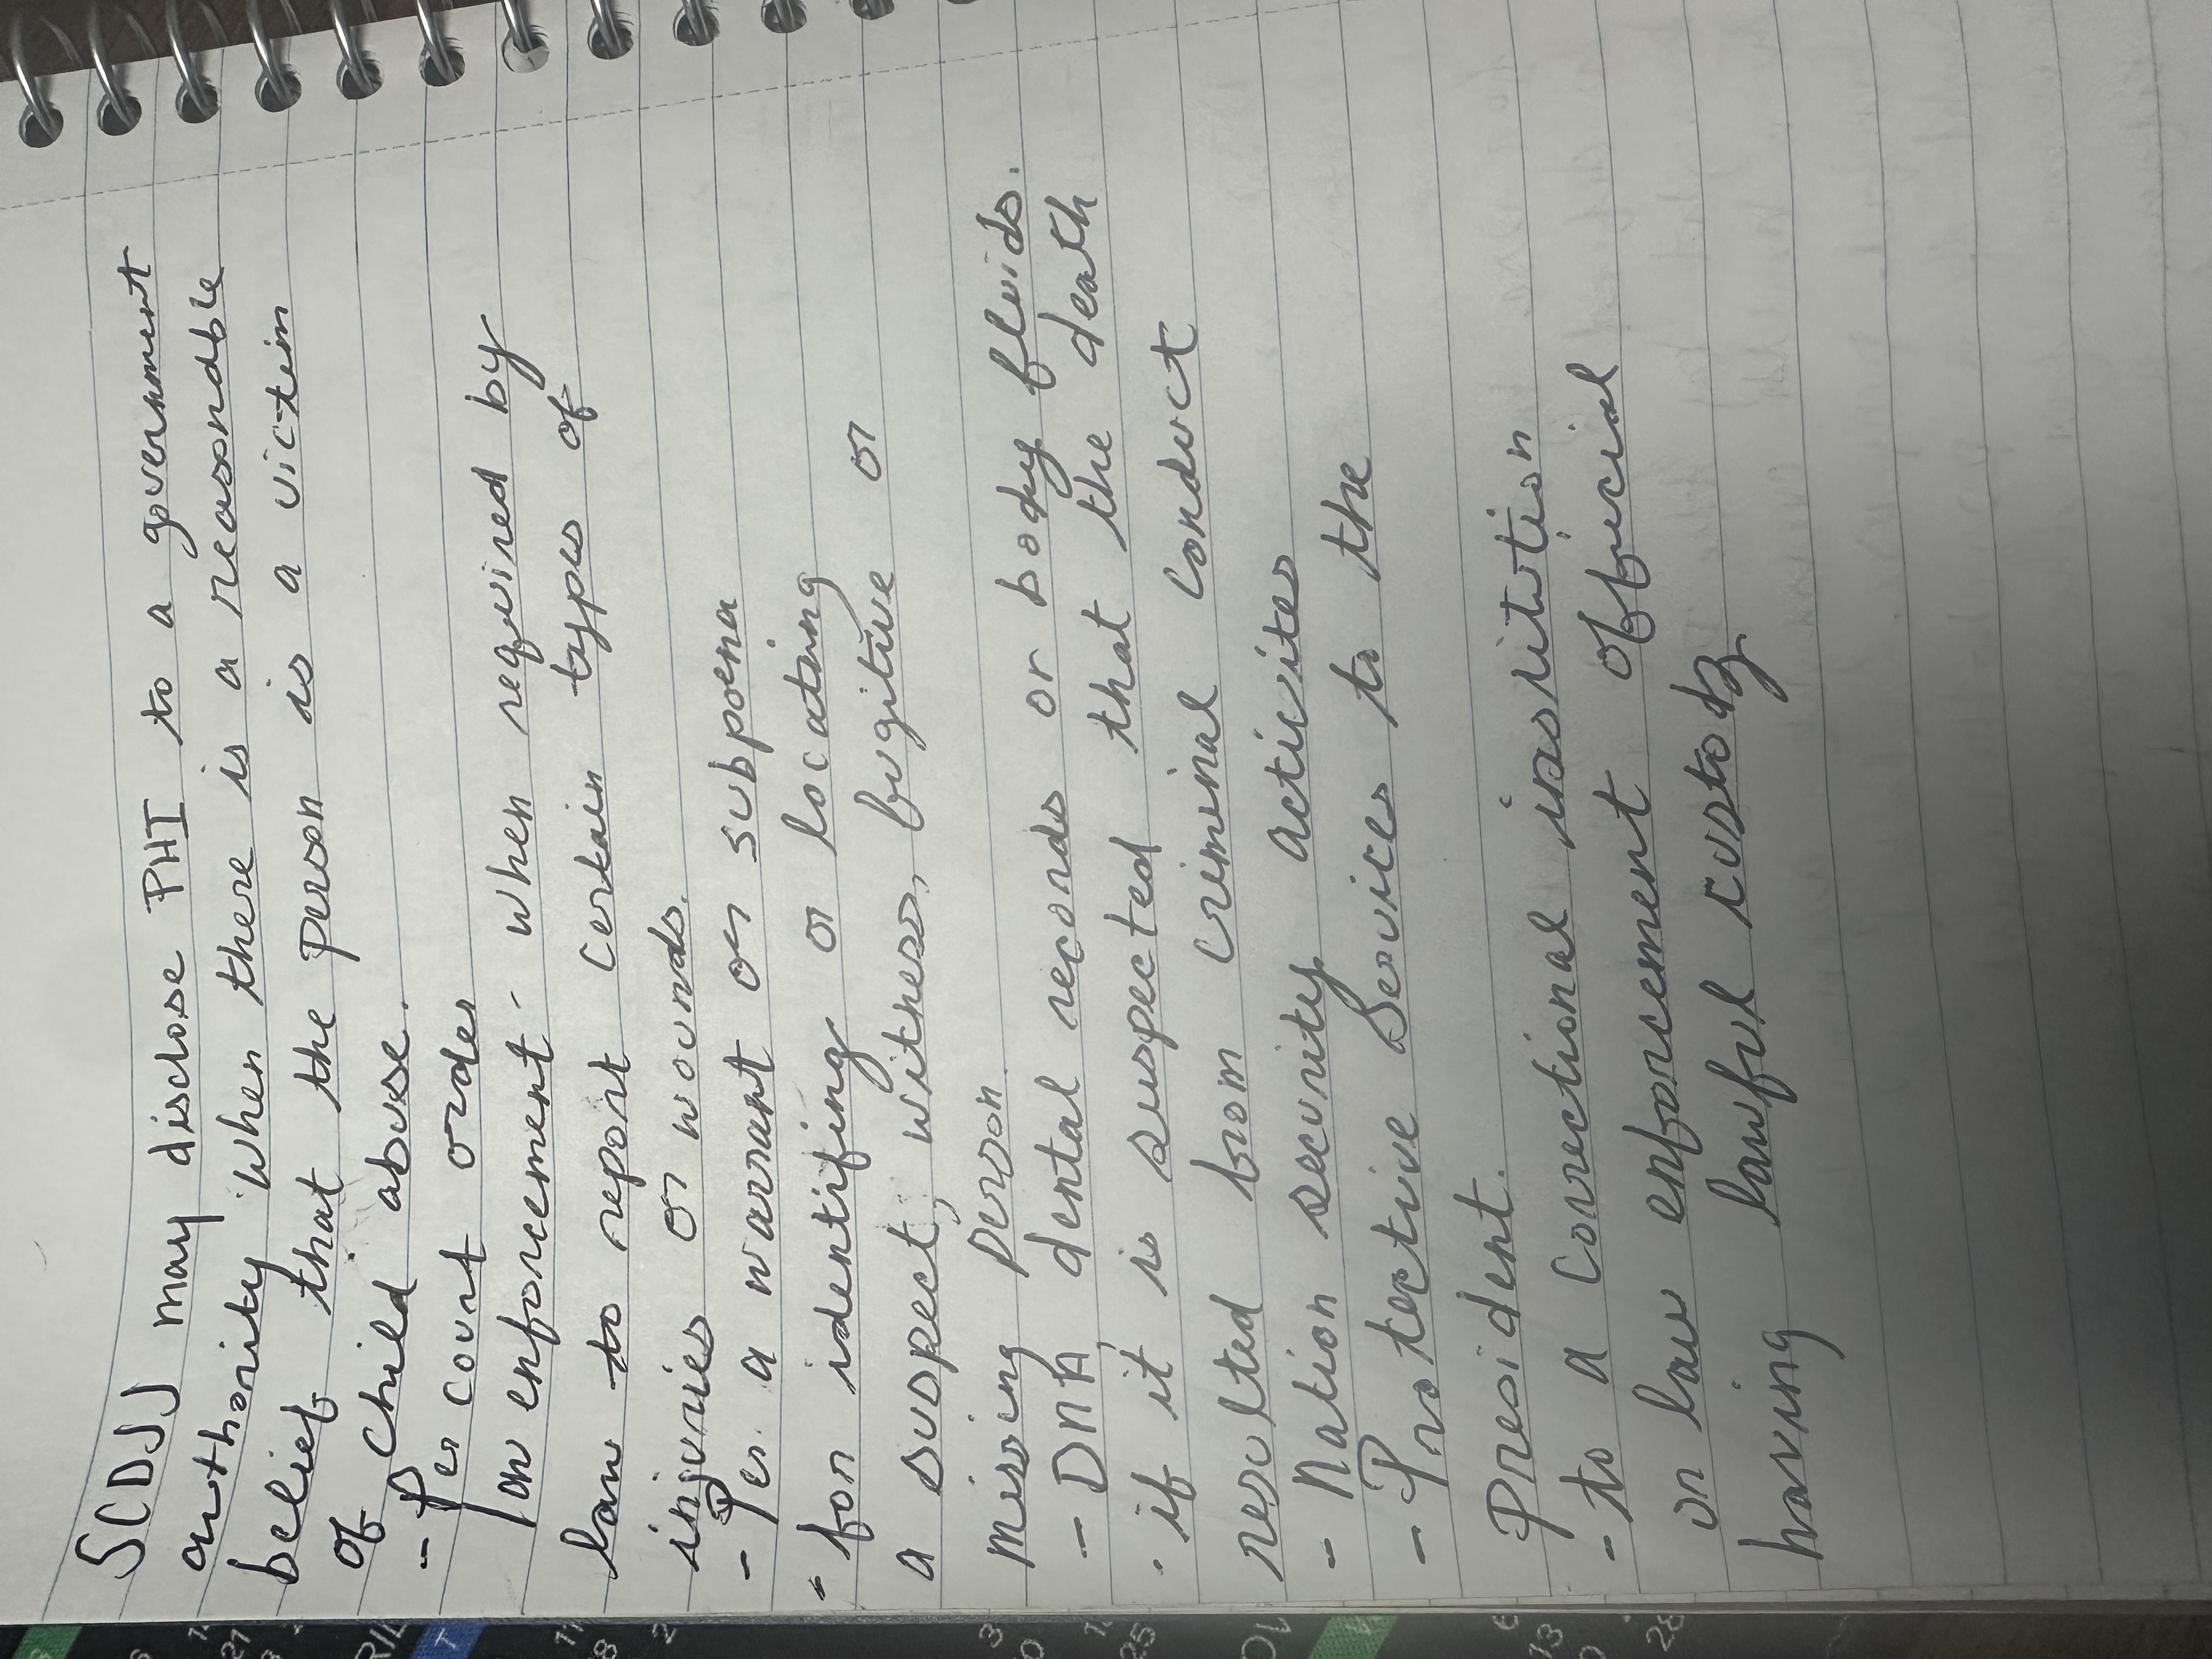 SCDJJ may disclose PHI to a government
authority when there is a reasonable
belief that the person is a victim
of child abuse.
- Per court order
law enforcement - when required by
law to report certain types of
injuries or wounds.
- Per a warrant or subpoena
- for identifying or locating
a suspect, witness, fugitive or
missing person
- DNA, dental records or body fluids.
- if it is suspected that the death
resulted from criminal conduct
- Nation security activites
- Protective Services to the
President.
- to a correctional institution
or law enforcement official
having lawful custody